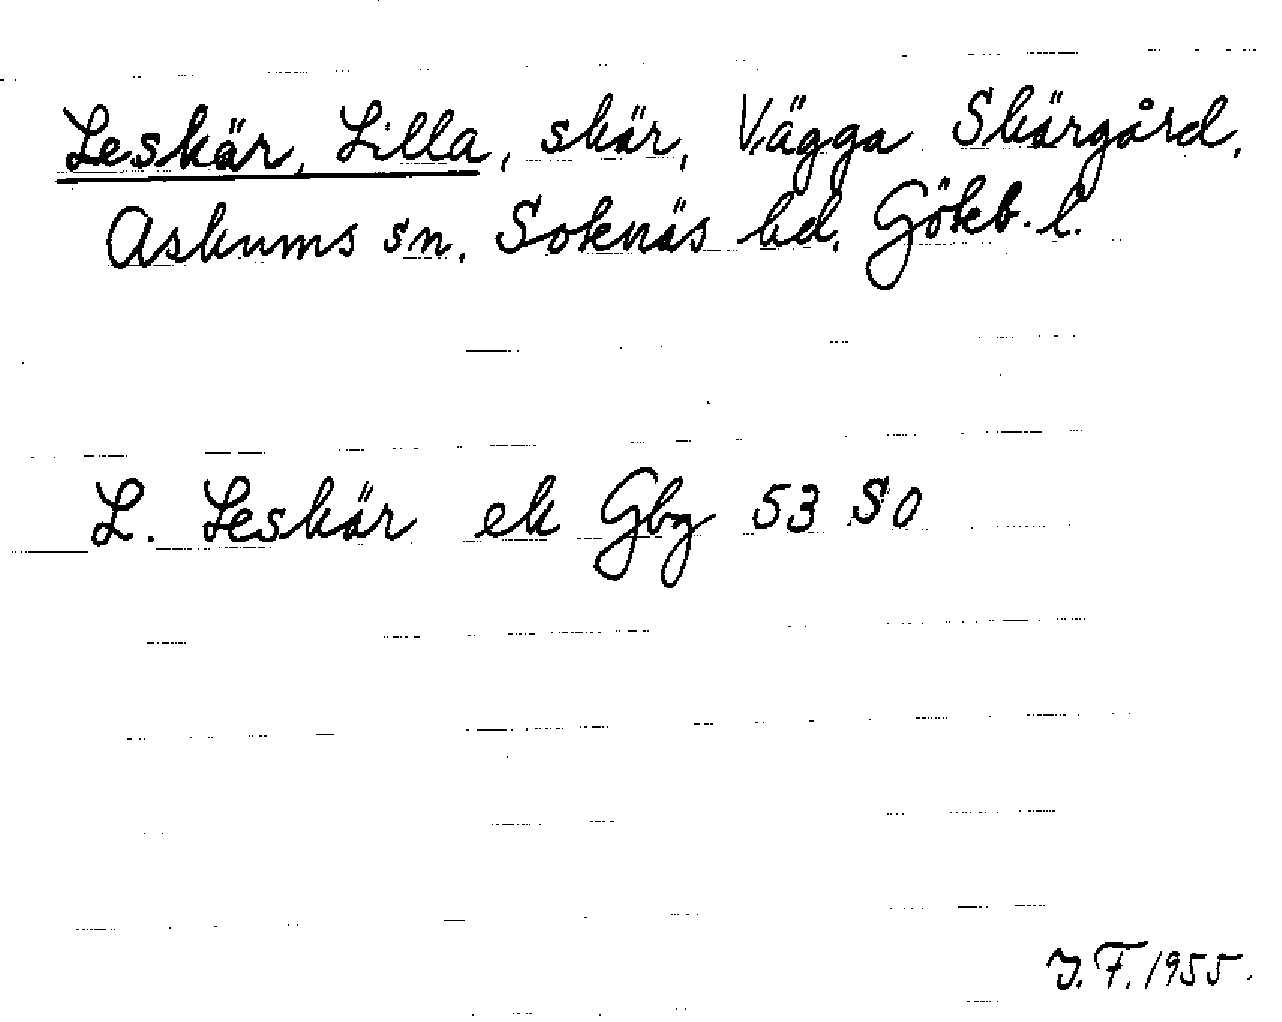 Leskär, Lilla, skär, Vägga Skärgård,
Askums sn. Soknäs hd. Gökb. l.
L. Leskär ek Gbg 53 SO
J. F. 1955.